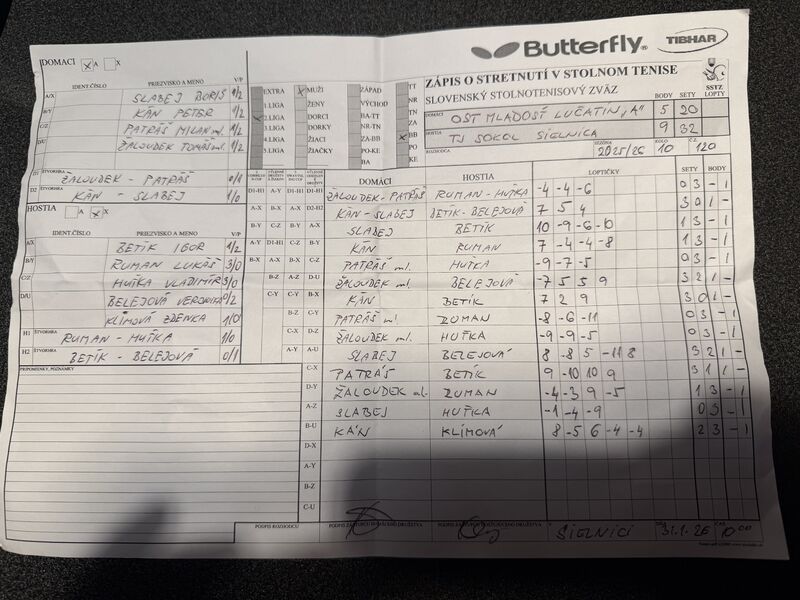 Butterfly® TIBHAR
ZÁPIS O STRETNUTÍ V STOLNOM TENISE
SLOVENSKÝ STOLNOTENISOVÝ ZVÄZ
BODY SETY SSTZ LOPTY
DOMÁCI OŠT MLADOSŤ LUČATÍN „A" 5 20
HOSTIA TJ SOKOL SIELNICA 9 32
ROZHODCA SEZÓNA 2025/26 KOLO 10 Č.Z. 120
DOMACI X A X
IDENT.ČÍSLO PRIEZVISKO A MENO V/P
A/X SLABEJ BORIS 1/2
B/Y KÁN PETER 1/2
C/Z PATRÁŠ MILAN ml. 1/2
D/U ŽALOUDEK TOMÁŠ ml. 1/2
D1 ŠTVORHRA ŽALOUDEK - PATRÁŠ 0/1
D2 ŠTVORHRA KÁN - SLABEJ 1/0
HOSTIA A X X
IDENT.ČÍSLO PRIEZVISKO A MENO V/P
A/X BETÍK IGOR 1/2
B/Y RUMAN LUKÁŠ 3/0
C/Z HUŤKA VLADIMÍR 3/0
D/U BELEJOVÁ VERONIKA 0/2
KLÍMOVÁ ZDENKA 1/0
H1 ŠTVORHRA RUMAN - HUŤKA 1/0
H2 ŠTVORHRA BETÍK - BELEJOVÁ 0/1
PRIPOMIENKY, POZNÁMKY
EXTRA X MUŽI ZÁPAD TT
1.LIGA ŽENY VÝCHOD NR
X 2.LIGA DORCI BA-TT TN
3.LIGA DORKY NR-TN ZA
4.LIGA ŽIACI ZA-BB X BB
5.LIGA ŽIAČKY PO-KE PO
BA KE
DOMÁCI HOSTIA LOPTIČKY SETY BODY
D1-H1 A-Y D1-H1 D1-H1 ŽALOUDEK-PATRÁŠ RUMAN-HUŤKA -4 -4 -6 0 3 - 1
A-X B-X A-X D2-H2 KÁN-SLABEJ BETÍK-BELEJOVÁ 7 5 4 3 0 1 -
B-Y C-Z B-Y A-X SLABEJ BETÍK 10 -9 -6 -10 1 3 - 1
A-Y D1-H1 C-Z B-Y KÁN RUMAN 7 -4 -4 -8 1 3 - 1
B-X A-X B-X C-Z PATRÁŠ ml. HUŤKA -9 -7 -5 0 3 - 1
B-Z A-Z D-U ŽALOUDEK ml. BELEJOVÁ -7 5 5 9 3 2 1 -
C-Y C-Y B-X KÁN BETÍK 7 2 9 3 0 1 -
B-Z C-Y PATRÁŠ ml. RUMAN -8 -6 -11 0 3 - 1
C-X D-Z ŽALOUDEK ml. HUŤKA -9 -9 -5 0 3 - 1
A-Y A-U SLABEJ BELEJOVÁ 8 -8 5 -11 8 3 2 1 -
C-X PATRÁŠ BETÍK 9 -10 10 9 3 1 1 -
D-Y ŽALOUDEK ml. RUMAN -4 -3 9 -5 1 3 - 1
A-Z SLABEJ HUŤKA -1 -4 -9 0 3 - 1
B-U KÁN KLÍMOVÁ 8 -5 6 -4 -4 2 3 - 1
D-X
A-Y
B-Z
C-U
PODPIS ROZHODCU PODPIS ZÁSTUPCU DOMÁCEHO DRUŽSTVA V SIELNICI DŇA 31.1.26 ČAS 10 00